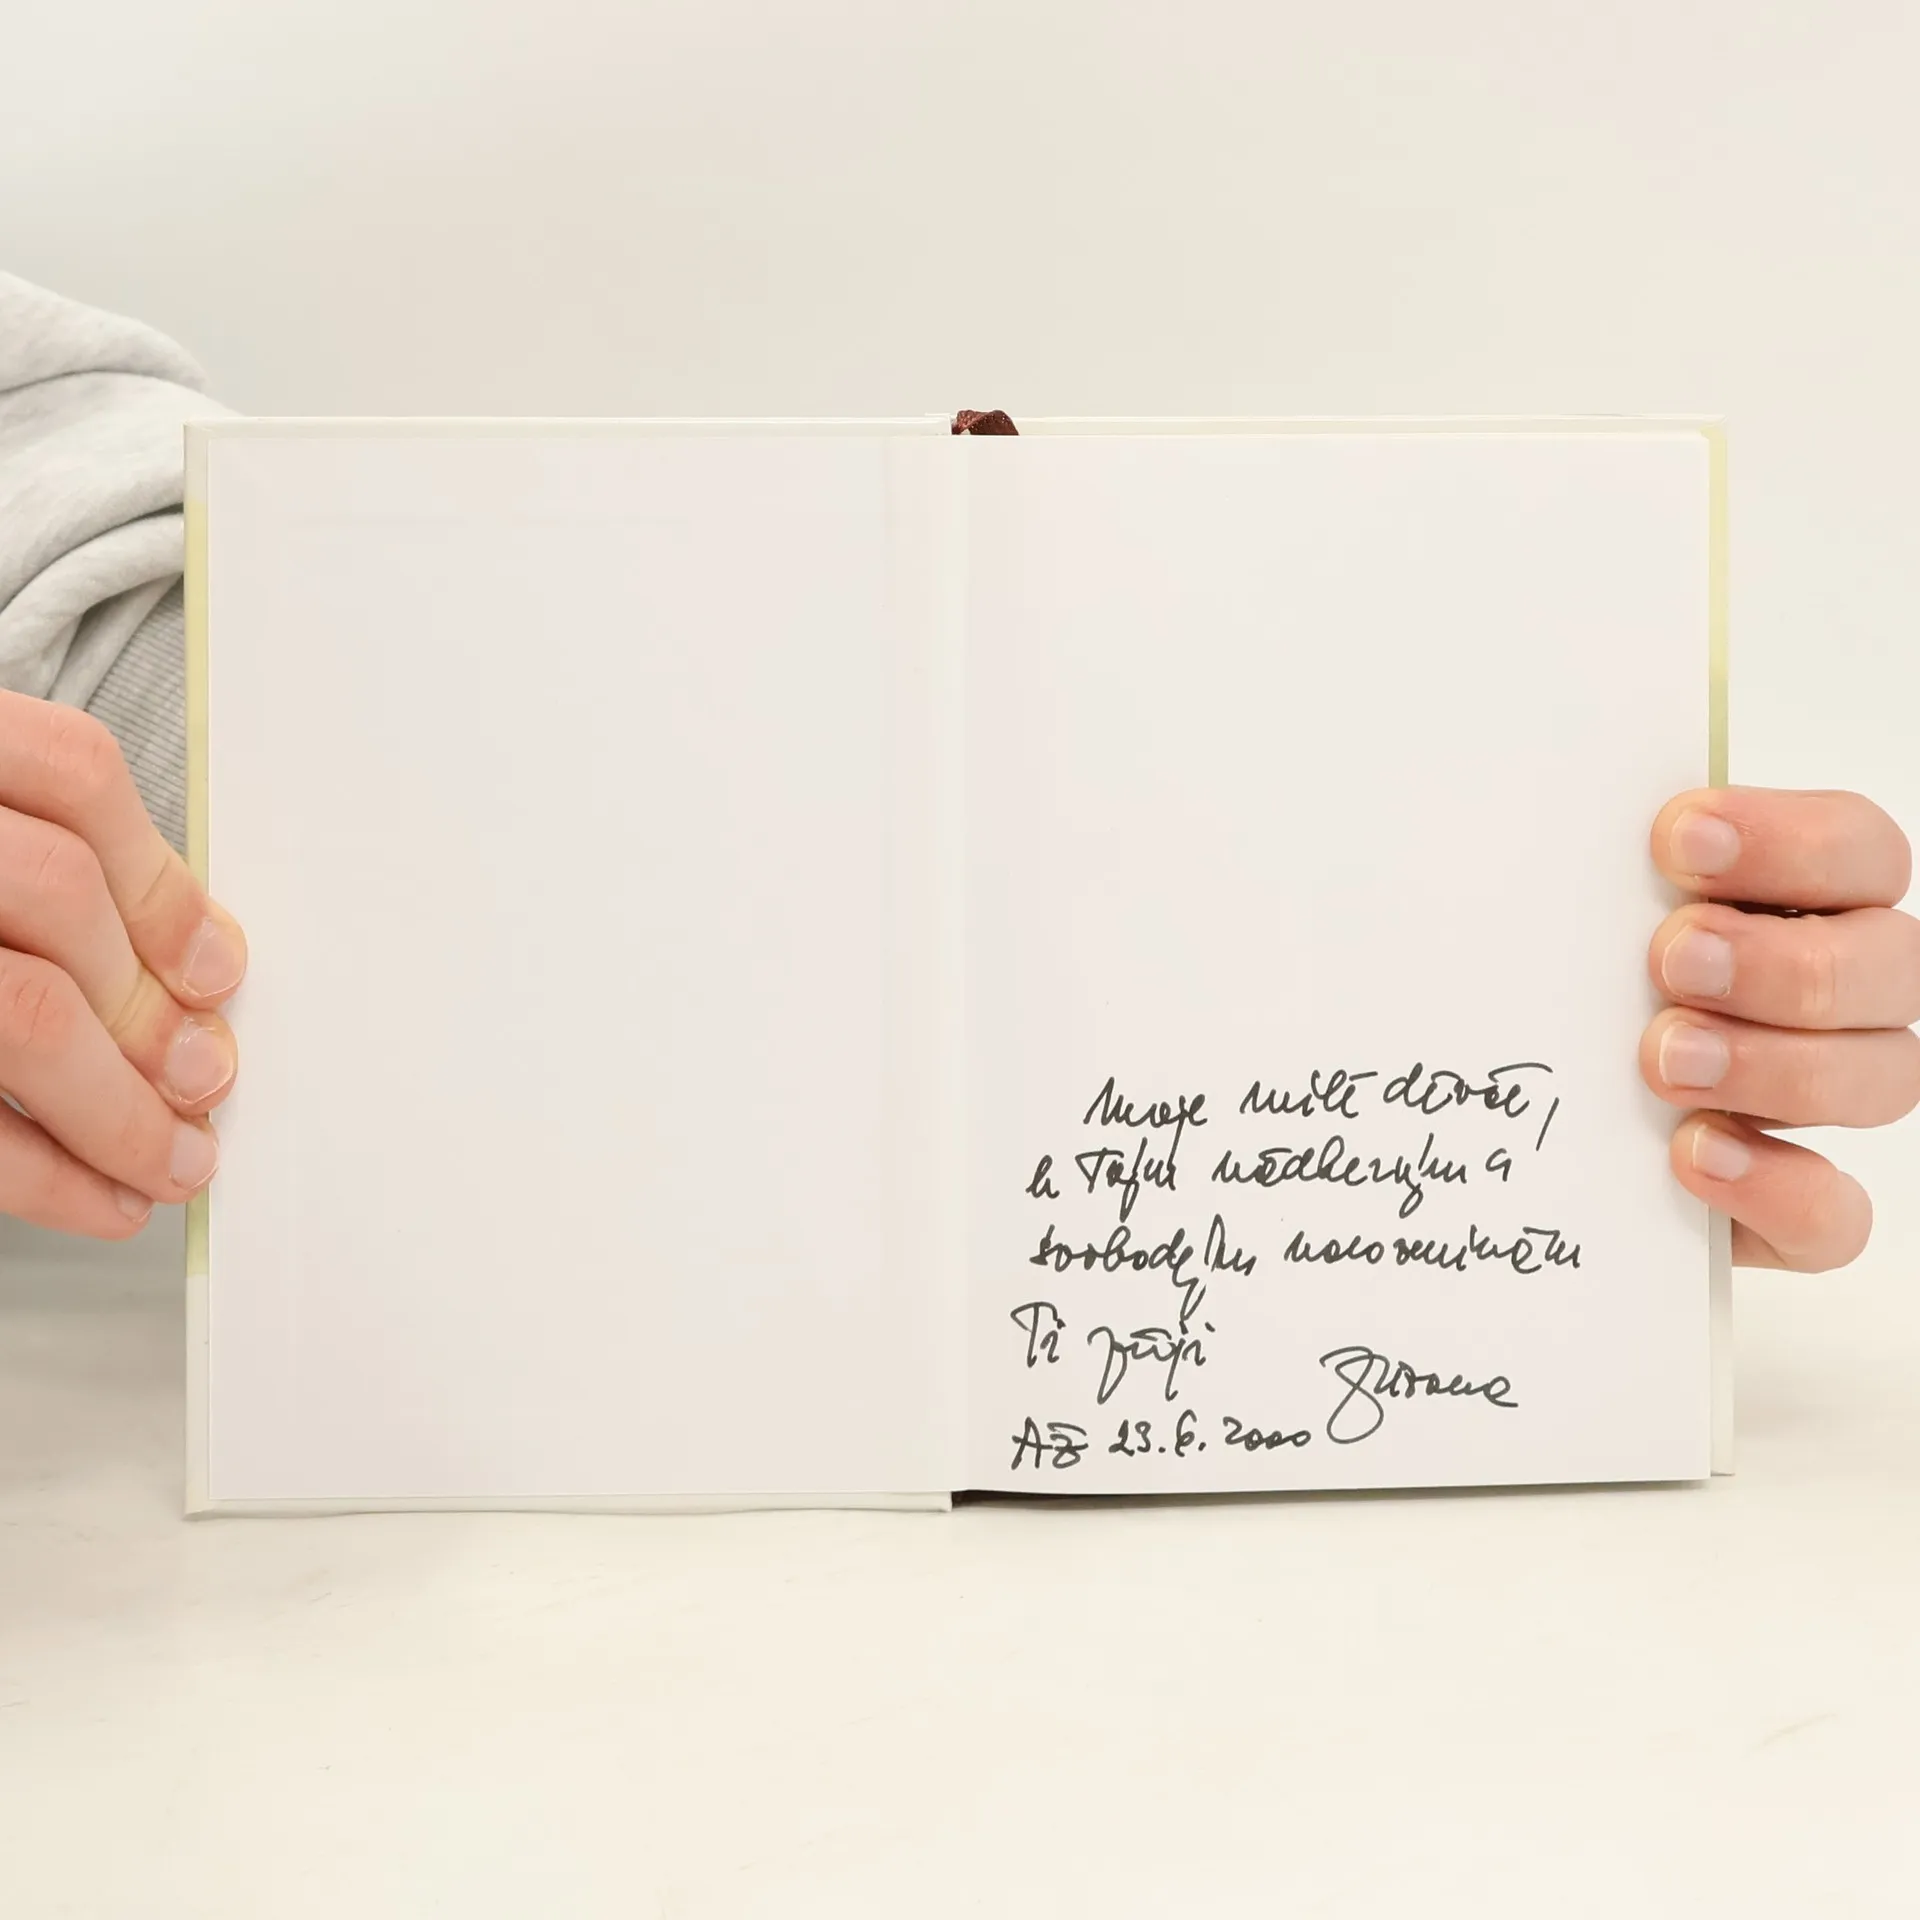 Moje milé děvče,
k Tvým nádherným a
svobodným narozeninám
Ti přeji Zuzana
Až 23.6.2000